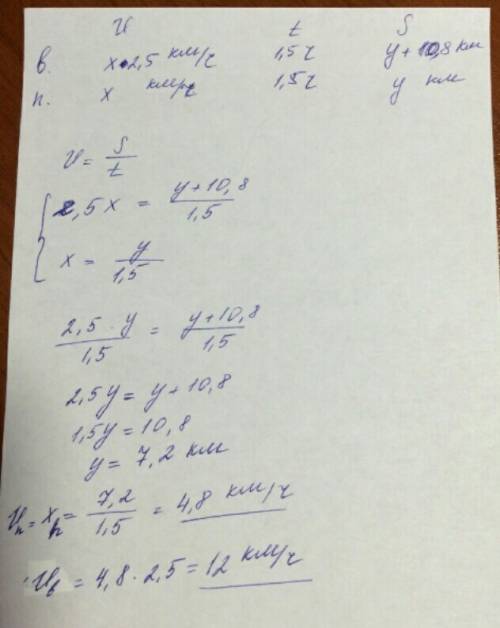 v t S
в. x·2,5 км/ч 1,5ч y+10,8 км
п. x км/ч 1,5ч y км
v = S/t
{ 2,5x = (y+10,8)/1,5
x = y/1,5
2,5·y/1,5 = (y+10,8)/1,5
2,5y = y+10,8
1,5y = 10,8
y = 7,2 км
vп = xп = 7,2/1,5 = 4,8 км/ч
vв = 4,8·2,5 = 12 км/ч